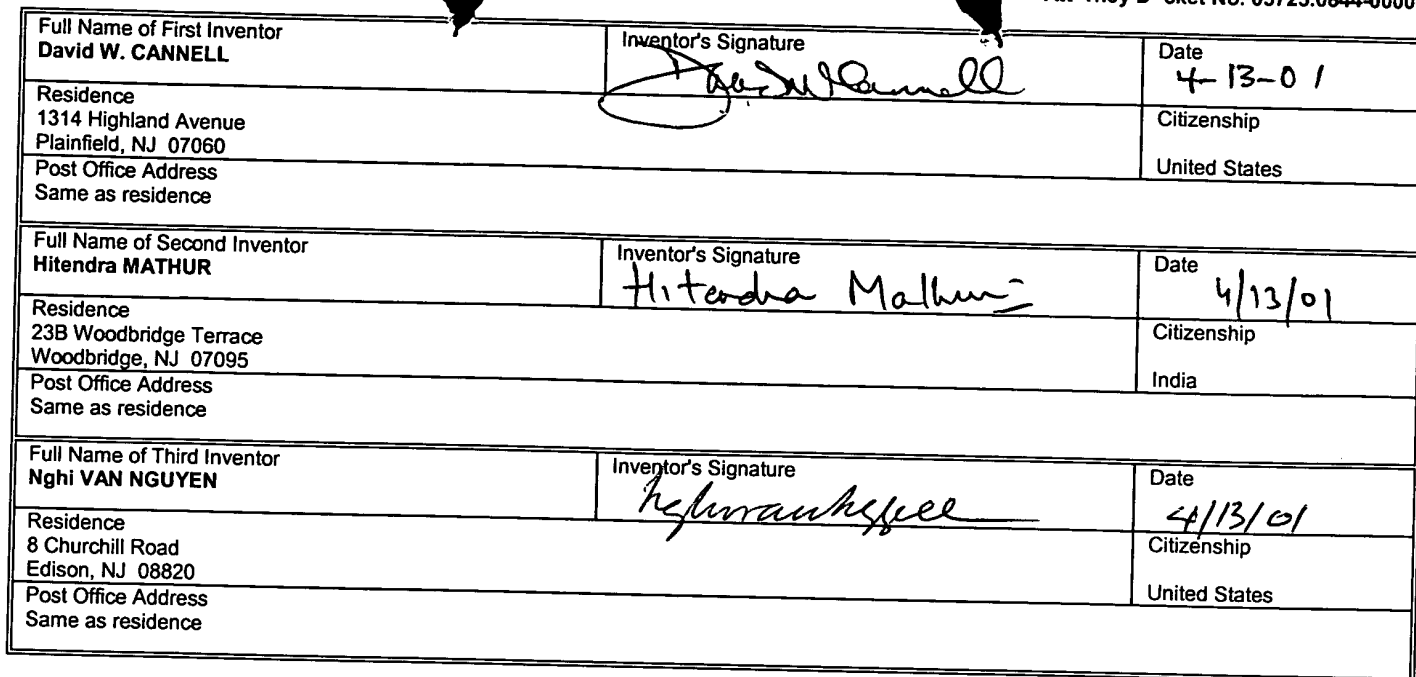 Docket No. 05725.0844-0000
Full Name of First Inventor
David W. CANNELL
Inventor's Signature
David W Cannell
Date
4-13-01
Residence
1314 Highland Avenue
Plainfield, NJ 07060
Citizenship
United States
Post Office Address
Same as residence
Full Name of Second Inventor
Hitendra MATHUR
Inventor's Signature
Hitendra Mathur
Date
4/13/01
Residence
23B Woodbridge Terrace
Woodbridge, NJ 07095
Citizenship
India
Post Office Address
Same as residence
Full Name of Third Inventor
Nghi VAN NGUYEN
Inventor's Signature
Date
4/13/01
Residence
8 Churchill Road
Edison, NJ 08820
Citizenship
United States
Post Office Address
Same as residence